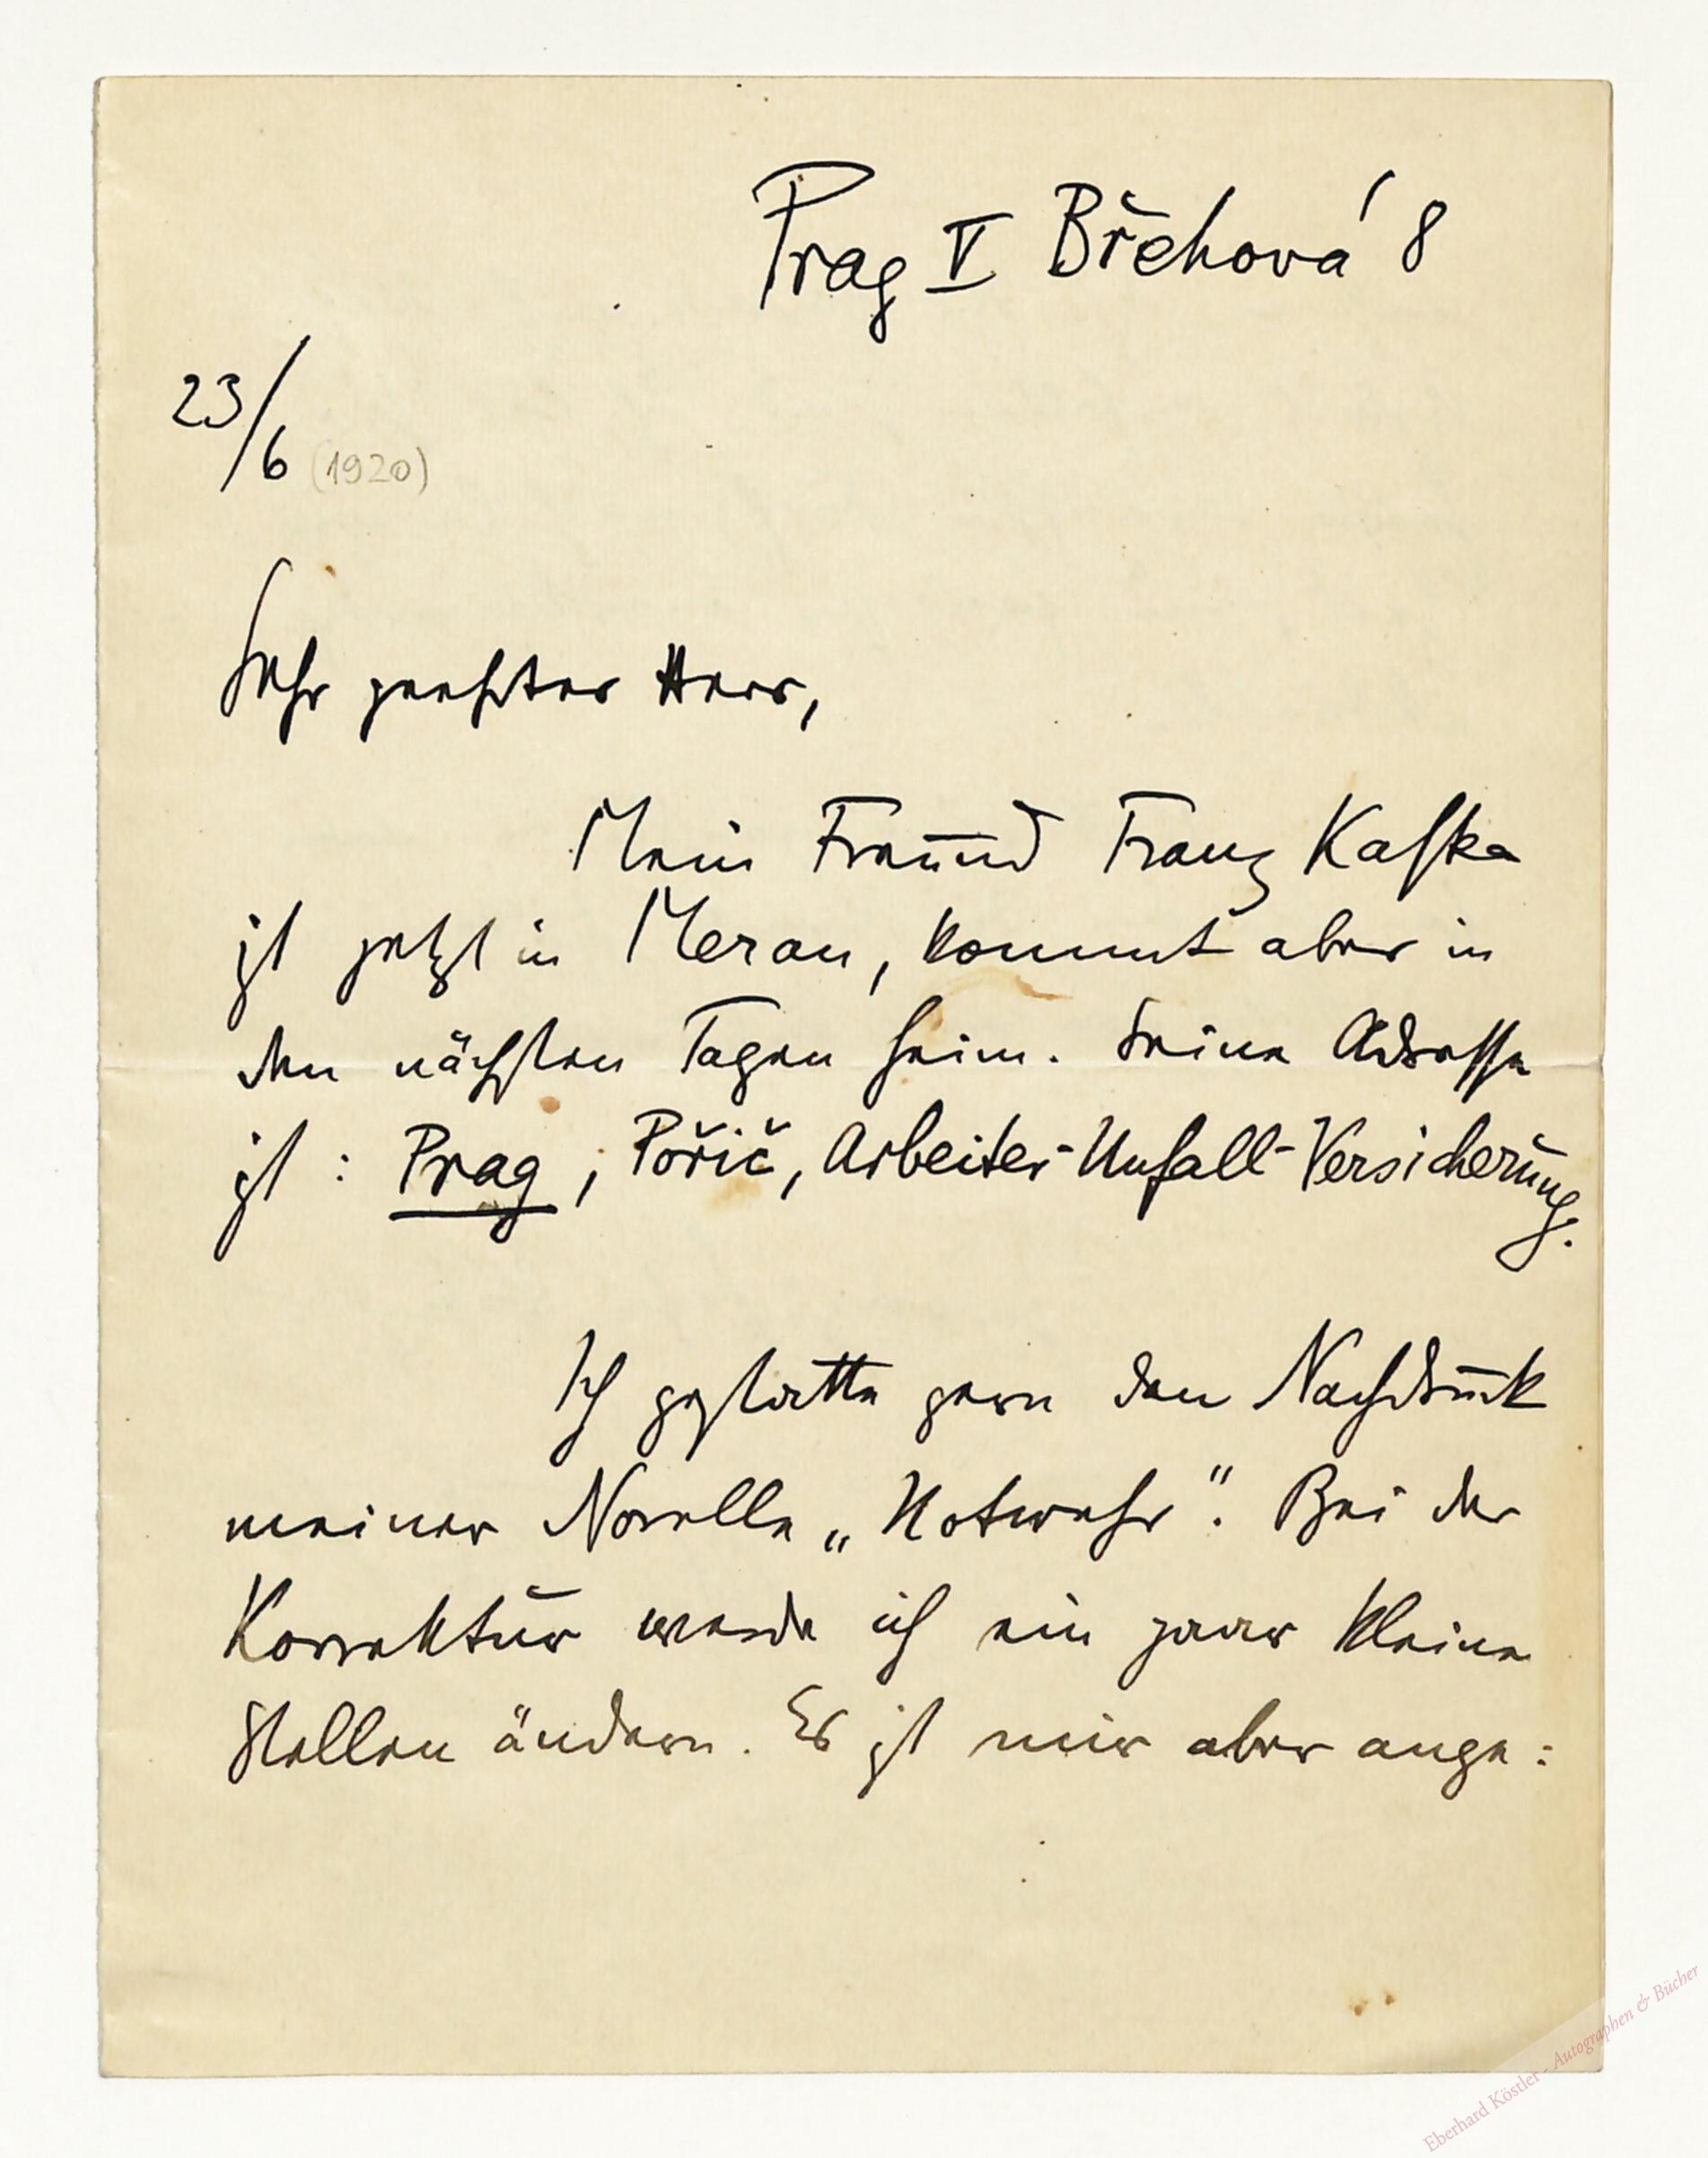 Prag V Břehová 8
23/6 (1920)
Sehr geehrter Herr,
Mein Freund Franz Kafka
ist jetzt in Meran, kommt aber in
den nächsten Tagen heim. Seine Adresse
ist : Prag, Pořič, Arbeiter-Unfall-Versicherung.
Ich gestatte gern den Nachdruck
meiner Novelle „Notwehr“. Bei der
Korrektur werde ich ein paar kleine
Stellen ändern. Es ist mir aber ange:
Eberhard Köstler - Autographen & Bücher